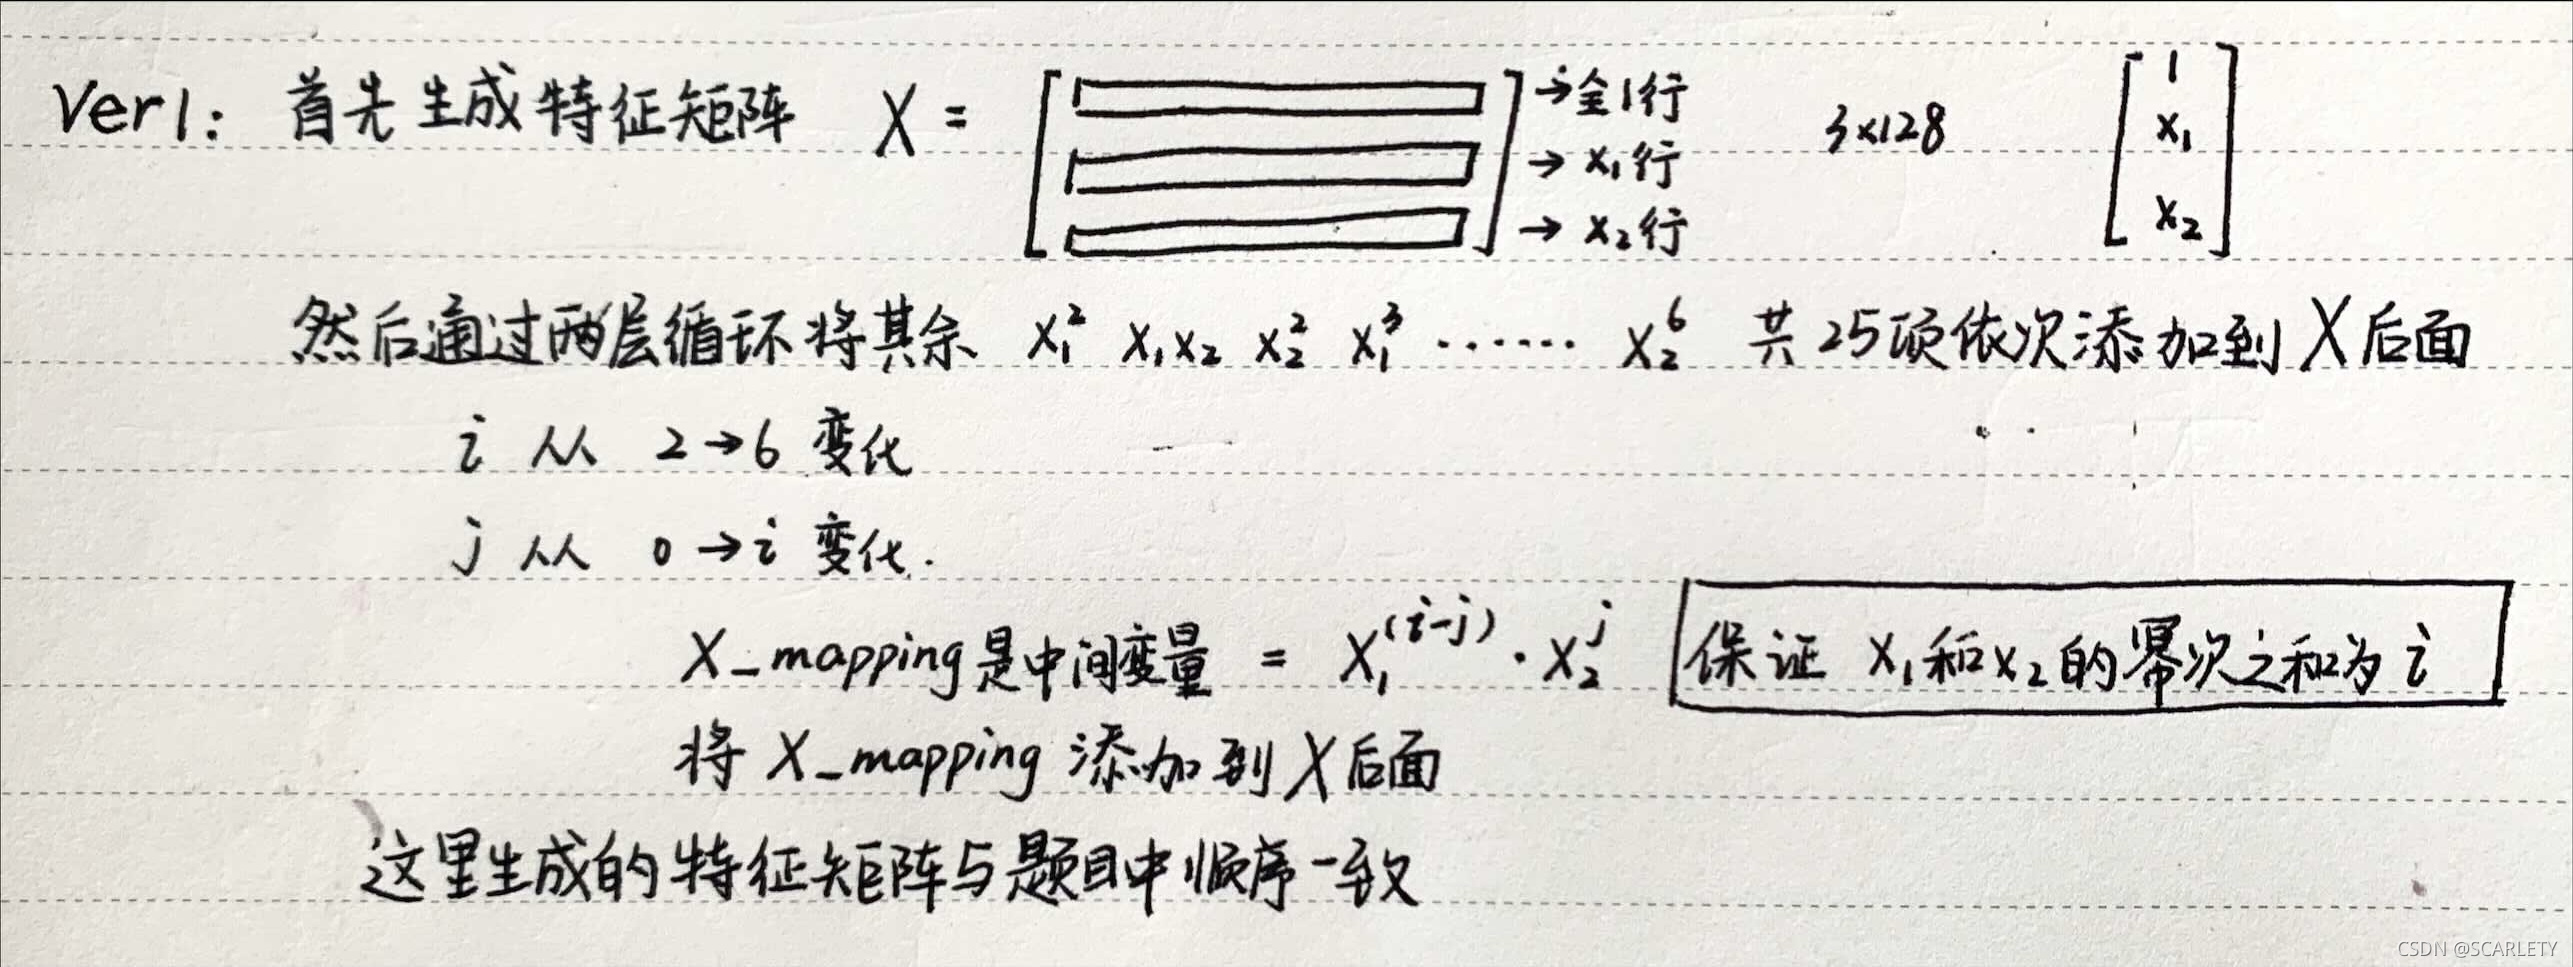 Ver1: 首先生成特征矩阵 X = →全1行 3×128 1
→ x₁行 x₁
→ x₂行 x₂
然后通过两层循环将其余 x₁² x₁x₂ x₂² x₁³ ······ x₂⁶ 共25项依次添加到X后面
i 从 2→6 变化
j 从 0→i 变化.
X_mapping是中间变量 = x₁^(i-j) · x₂^j 保证 x₁和x₂的幂次之和为 i
将 X_mapping 添加到X后面
这里生成的特征矩阵与题目中顺序一致
CSDN @SCARLETY